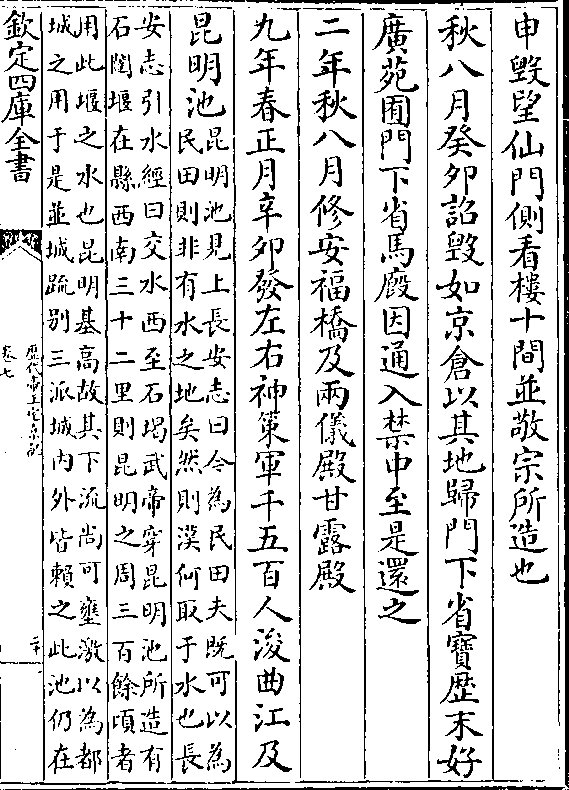 申毁望仙門側看樓十間並敬宗所造也
秋八月癸卯詔毁如京倉以其地歸門下省寶歴末好
廣苑囿門下省馬廄因通入禁中至是還之
二年秋八月修安福橋及兩儀殿甘露殿
九年春正月辛卯發左右神策軍千五百人浚曲江及
昆明池
昆明池見上長安志曰今為民田夫既可以為
民田則非有水之地矣然則漢何取于水也長
安志引水經曰交水西至石堨武帝穿昆明池所造有
石闥堰在縣西南三十二里則昆明之周三百餘頃者
用此堰之水也昆明基高故其下流尚可壅激以為都
城之用于是並城疏别三派城内外皆賴之此池仍在
欽定四庫全書
歴代帝王宅京記
卷七